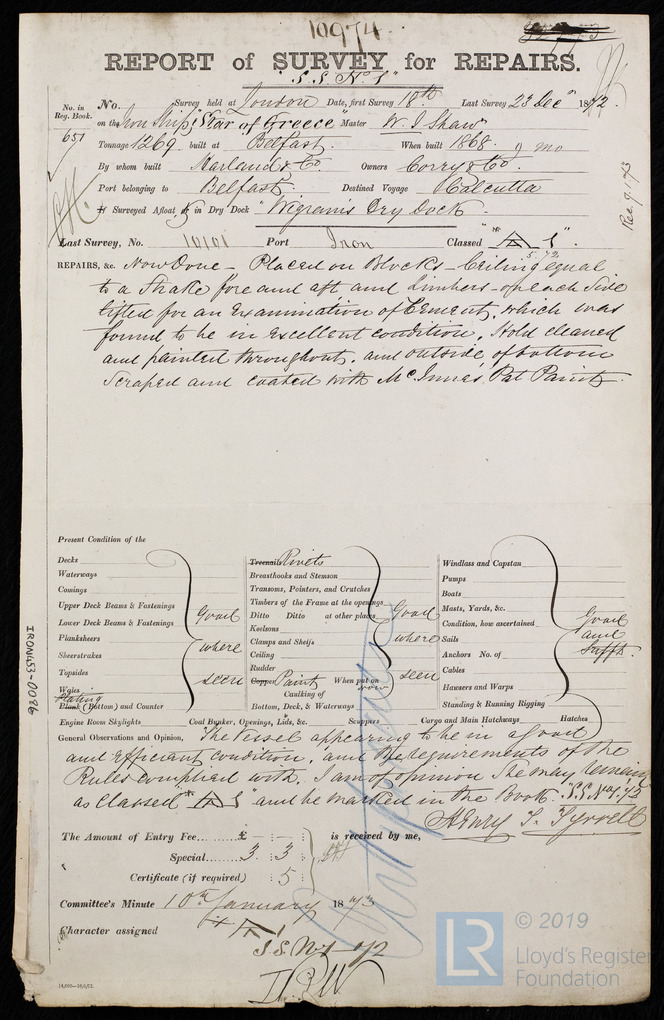 10974
REPORT of SURVEY for REPAIRS.
"S.S. No. 1"
No. in Reg. Book. No. Survey held at London Date, first Survey 18th Last Survey 23 Decr 1872.
651 on the Iron Ship "Star of Greece" Master W. J. Shaw
Tonnage 1269 built at Belfast. When built 1868. 9 mo
By whom built Harland & Co Owners Corry & Co.
Port belonging to Belfast Destined Voyage Calcutta
If Surveyed Afloat, or in Dry Dock "Wigram's Dry Dock.
Last Survey, No. Port Iron Classed A 1".
5.72
Rec. 9.1.73
REPAIRS, &c. Now Done - Placed on Blocks - Ceiling equal
to a Strake fore and aft and Limbers of each side
lifted for an Examination of Cement, which was
found to be in Excellent condition, Hold cleaned
and painted throughout, and outside of bottom
Scraped and coated with McInnes' Pat Paint.
Present Condition of the
Decks
Waterways
Comings
Upper Deck Beams & Fastenings
Lower Deck Beams & Fastenings
Planksheers
Sheerstrakes
Topsides
Wales
Plating
Plank (Bottom) and Counter
Good
where
seen
Treenails Rivets
Breasthooks and Stemson
Transoms, Pointers, and Crutches
Timbers of the Frame at the openings
Ditto Ditto at other places
Keelsons
Clamps and Shelfs
Ceiling
Rudder
Copper Paint When put on now
Caulking of
Bottom, Deck, & Waterways
Good
where
seen
Windlass and Capstan
Pumps
Boats
Masts, Yards, &c.
Condition, how ascertained
Sails
Anchors No. of
Cables
Hawsers and Warps
Standing & Running Rigging
Good
and
Sufft.
Engine Room Skylights Coal Bunker, Openings, Lids, &c. Scuppers Cargo and Main Hatchways Hatches
General Observations and Opinion, The Vessel appearing to be in a Good
and Efficient condition, and the requirements of the
Rules complied with, I am of opinion She may remain
as Classed A 1 and be marked in the Book. "S.S. No 1. 72
Henry T. Tyrrell
The Amount of Entry Fee...... £ : : is received by me,
Special...... 3. 3
Certificate (if required) : 5
Committee's Minute 10th January 1873
Character assigned A 1
S.S. No 1 72
IRON453-0086
LR © 2019
Lloyd's Register
Foundation